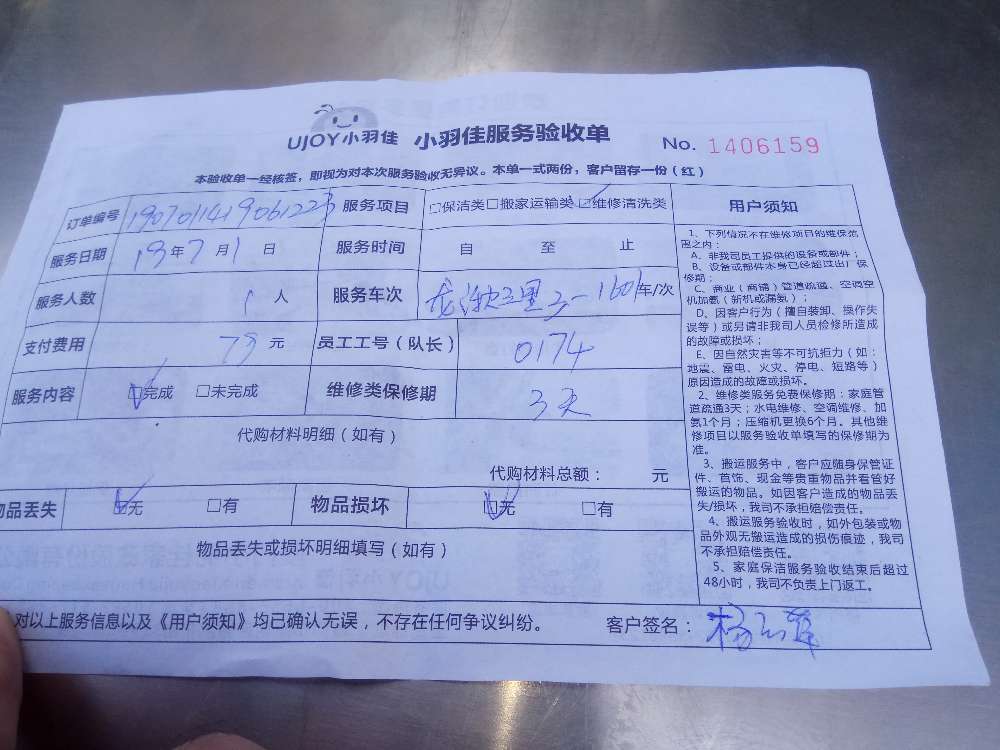 UJOY小羽佳 小羽佳服务验收单 No. 1406159
本验收单一经核签，即视为对本次服务验收无异议。本单一式两份，客户留存一份（红）
订单编号 190701141906122 服务项目 □保洁类□搬家运输类☑维修清洗类
服务日期 19年7月1日 服务时间 自 至 止
服务人数 1人 服务车次 3-1601车/次
支付费用 元 员工工号（队长） 0174
服务内容 ☑完成 □未完成 维修类保修期 3天
代购材料明细（如有）
代购材料总额： 元
物品丢失 ☑无 □有 物品损坏 ☑无 □有
物品丢失或损坏明细填写（如有）
对以上服务信息以及《用户须知》均已确认无误，不存在任何争议纠纷。 客户签名： 杨
用户须知
1、下列情况不在维修项目的维保范
围之内：
A、非我司员工提供的设备或部件；
B、设备或部件本身已经超过出厂保
修期；
C、商业（商铺）管道疏通、空调空
机加氨（新机或漏氨）；
D、因客户行为（擅自装卸、操作失
误等）或另请非我司人员检修所造成
的故障或损坏；
E、因自然灾害等不可抗拒力（如：
地震、雷电、火灾、停电、短路等）
原因造成的故障或损坏。
2、维修类服务免费保修期：家庭管
道疏通3天；水电维修、空调维修、加
氨1个月；压缩机更换6个月。其他维
修项目以服务验收单填写的保修期为
准。
3、搬运服务中，客户应随身保管证
件、首饰、现金等贵重物品并看管好
搬运的物品。如因客户造成的物品丢
失/损坏，我司不承担赔偿责任。
4、搬运服务验收时，如外包装或物
品外观无搬运造成的损伤痕迹，我司
不承担赔偿责任。
5、家庭保洁服务验收结束后超过
48小时，我司不负责上门返工。